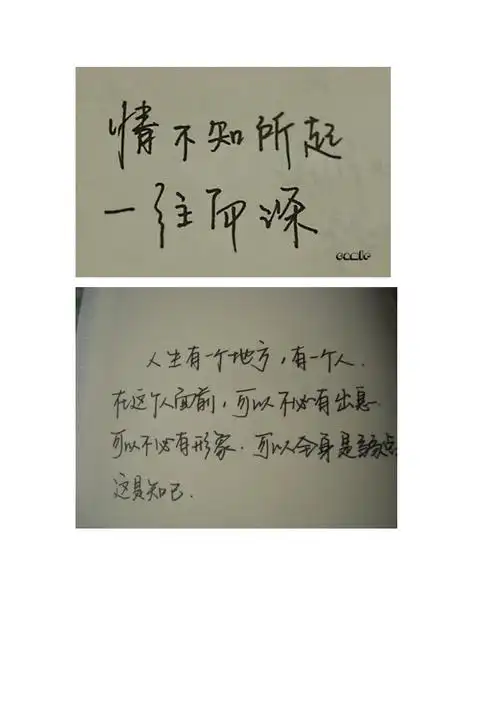 情不知所起
一往而深
comic
人生有一个地方，有一个人.
在这个人面前，可以不必有出息.
可以不必有形象. 可以全身是缺点
这是知己.